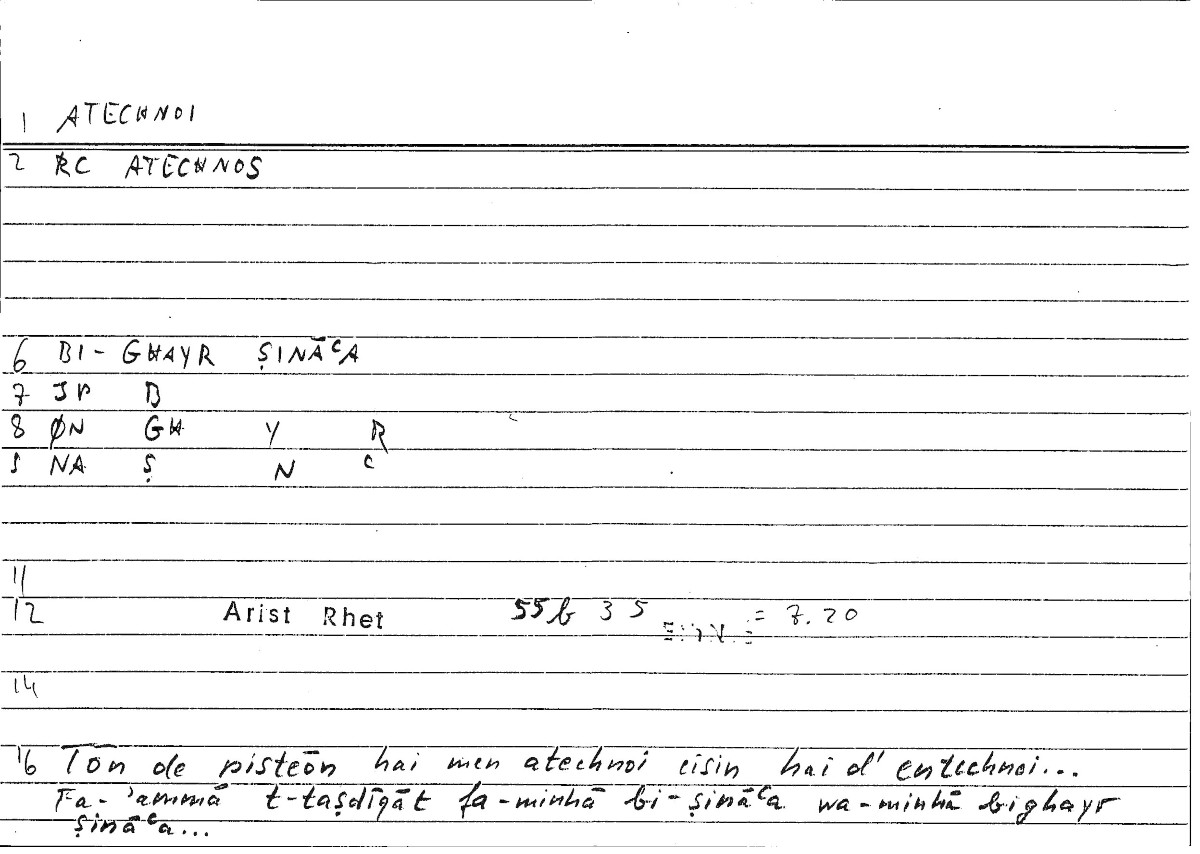 1 ATECHNOI
2 RC ATECHNOS
6 BI-GHAYR ṢINĀʿA
7 JP B
8 ØN GH Y R
9 NA Ṣ N ʿ
11
12 Arist Rhet 55b 35 = 7.20
14
16 Tōn de pisteōn hai men atechnoi eisin hai d' entechnoi...
Fa-ʾammā t-taṣdīqāt fa-minhā bi-ṣināʿa wa-minhā bighayr
ṣināʿa...